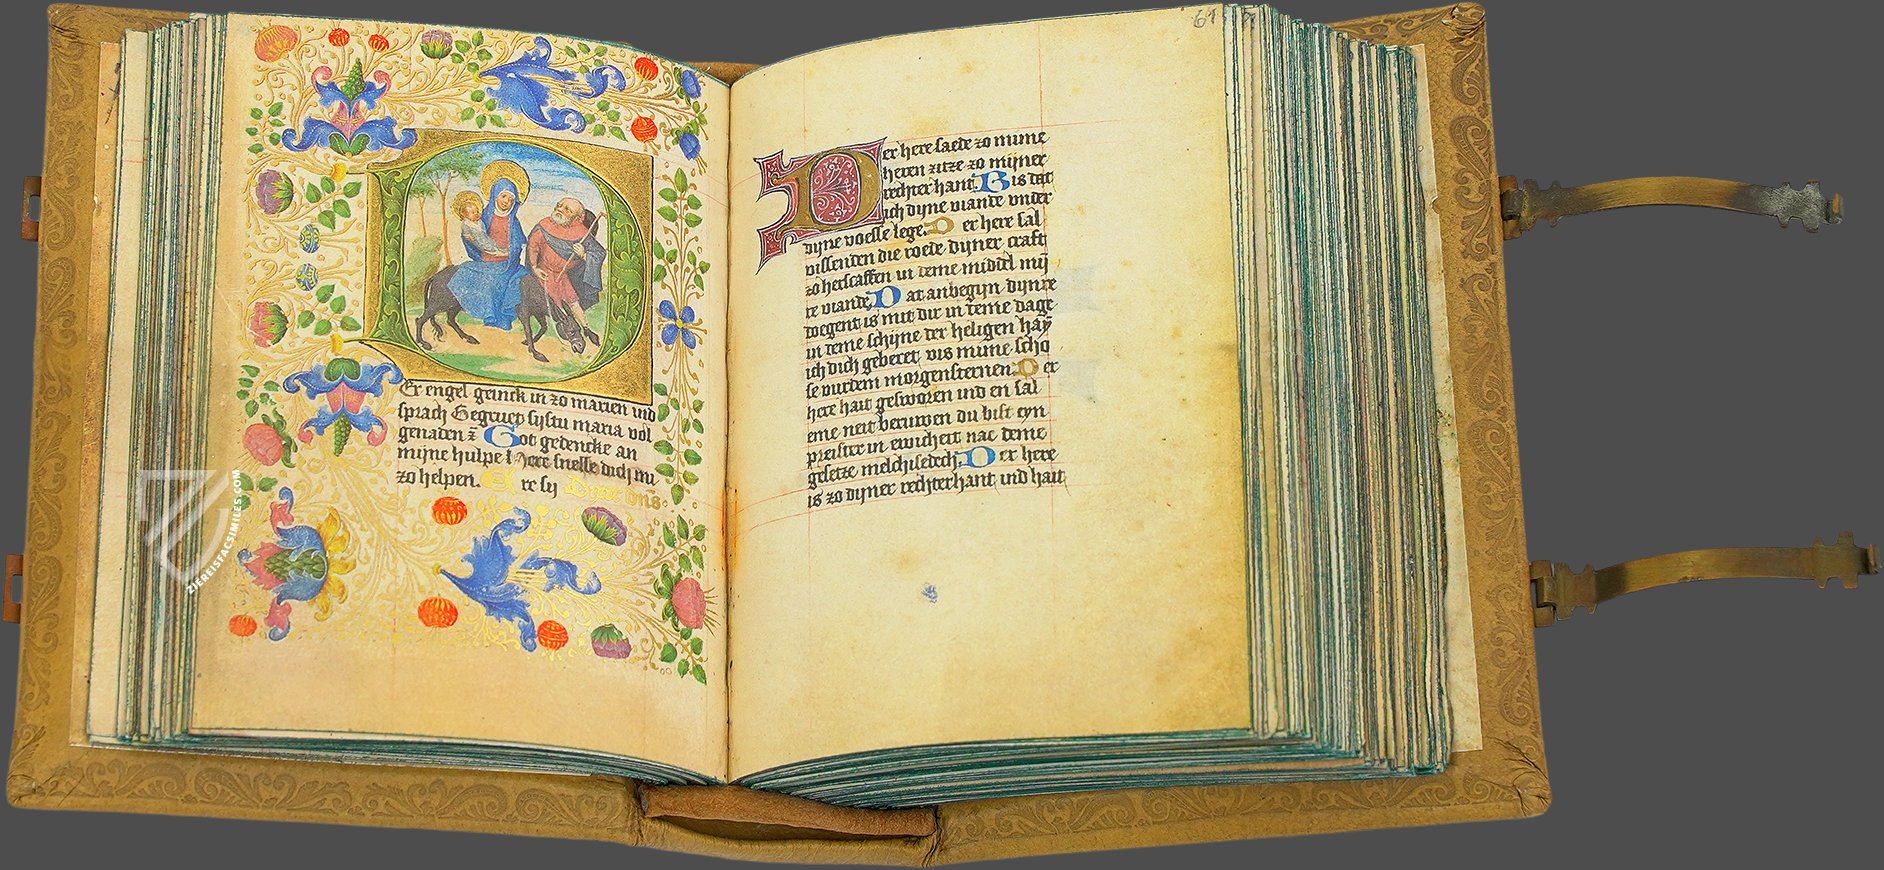 Er engel geinck in zo marien vnd
sprach Gegruet sijstu maria vol
genaden Got gedencke an
mijne hulpe here snelle dich mi
zo helpen. Ere sij
61
Der here saede zo mime
heren sitze zo mijner
rechter hant. Bis dat
ich dijne viande vnder
dijne voesse lege. Der here sal
vissenden die roede dijner craft
zo herscaffen in deme middel mij
re viande Dat anbegijn dijnre
doegent is mit dir in deme dage
in deme schijne der heligen hay
ich dich geberet vis mime scho
se vurdem morgensternen. Der
here hait gesworen vnd en sal
eme neit beruwen du bist eyn
preister in ewicheit nac deme
gesetze melchisedech. Der here
is zo dijner rechterhant vnd hait
ZIEREISFACSIMILES.COM